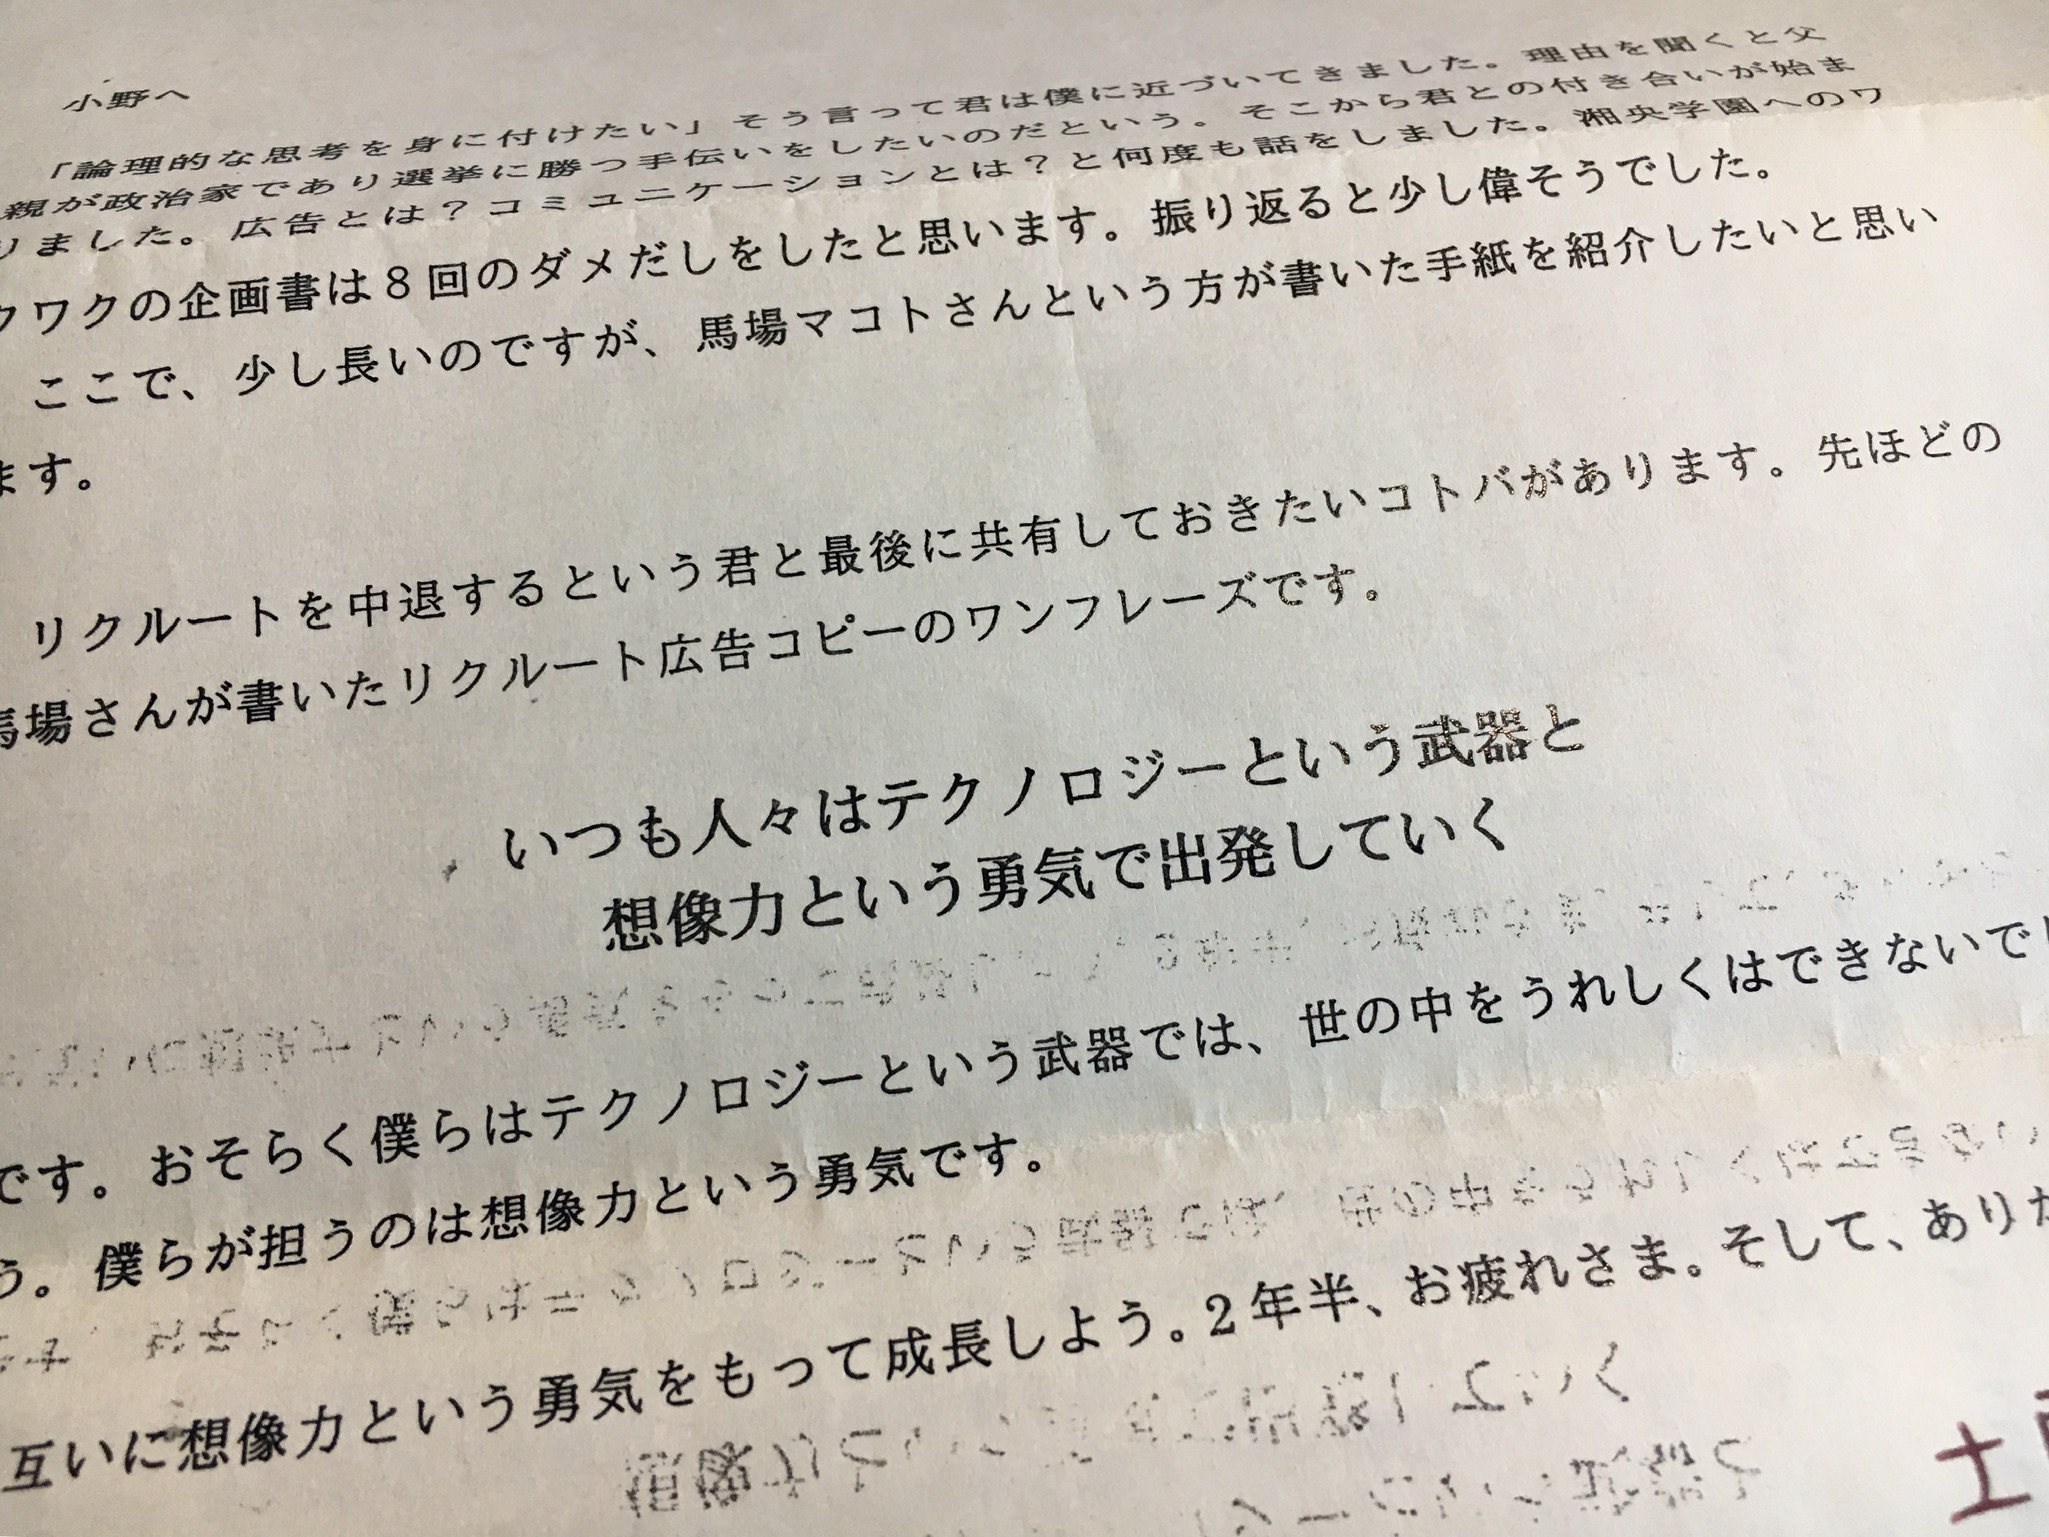 小野へ
「論理的な思考を身に付けたい」そう言って君は僕に近づいてきました。理由を聞くと父
親が政治家であり選挙に勝つ手伝いをしたいのだという。そこから君との付き合いが始ま
りました。広告とは？コミュニケーションとは？と何度も話をしました。湘央学園へのワ
クワクの企画書は８回のダメだしをしたと思います。振り返ると少し偉そうでした。
ここで、少し長いのですが、馬場マコトさんという方が書いた手紙を紹介したいと思い
ます。
リクルートを中退するという君と最後に共有しておきたいコトバがあります。先ほどの
馬場さんが書いたリクルート広告コピーのワンフレーズです。
いつも人々はテクノロジーという武器と
想像力という勇気で出発していく
です。おそらく僕らはテクノロジーという武器では、世の中をうれしくはできないでし
う。僕らが担うのは想像力という勇気です。
互いに想像力という勇気をもって成長しよう。２年半、お疲れさま。そして、ありが
土